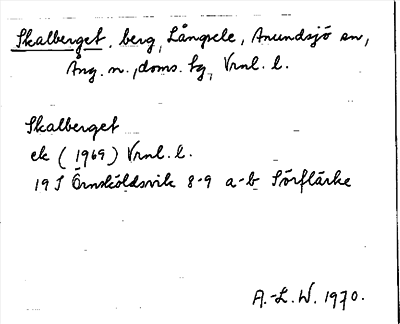 Skalberget, berg, Långsele, Anundsjö sn,
Ång. n., doms. hg, Vrnl. l.
Skalberget
ek (1969) Vrnl. l.
19 I Örnsköldsvik 8-9 a-b Sörflärke
A.-L. W. 1970.